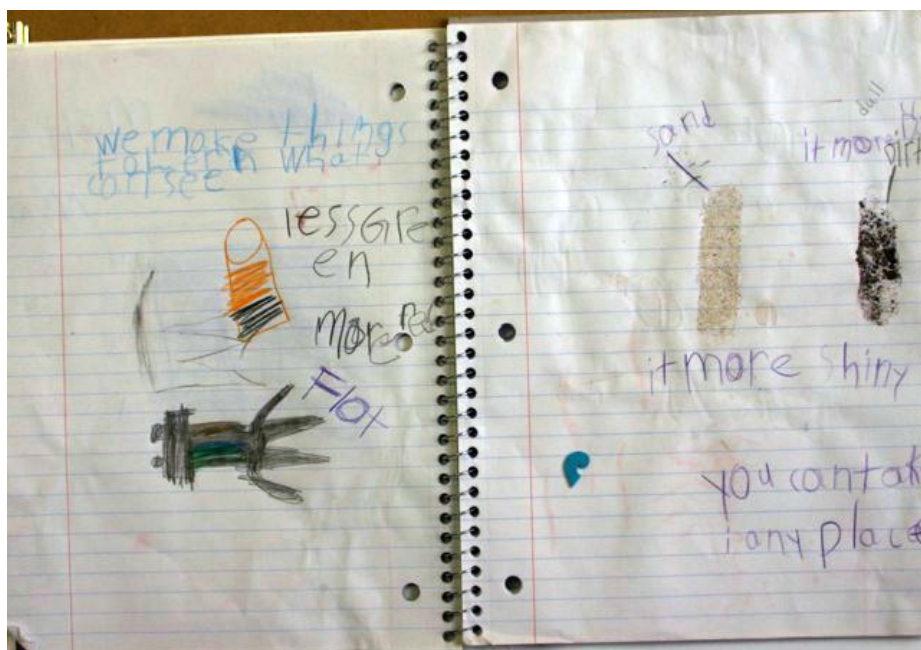 we make things
what
can see
lessGre
en
more
Flot
sand
dull
it more
Dirt
it more shiny
you can tak
i any place